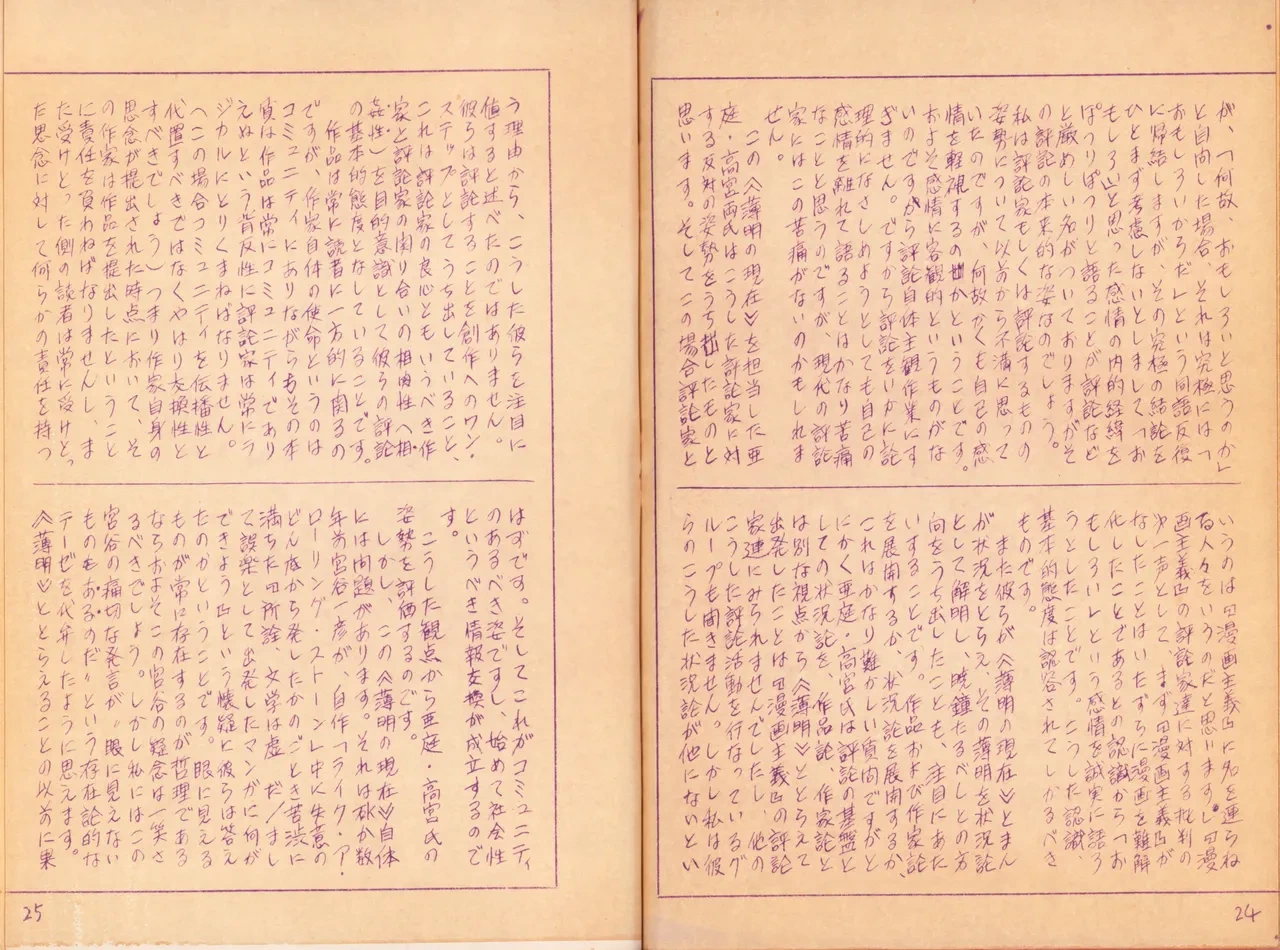 が、「何故、おもしろいと思うのか」
と自問した場合、それは究極には「
おもしろいからだ」という同語反復
に帰結しますが、その究極の結論を
ひとまず考慮しないとしまして「お
もしろい」と思った感情の内的経緯を
ぽつりぽつりと語ることが評論など
と厳めしい名がついておりますがそ
の評論の本来的な姿なのでしょう。
私は評論家もしくは評論するものの
姿勢について以前から不満に思って
いたのですが、何故かくも自己の感
情を軽視するのかということです。
およそ感情に客観的というものがな
いのですから評論自体主観作業にす
ぎません。ですから評論をいかに論
理的になさしめようとしても自己の
感情を離れて語ることはかなり苦痛
なことと思うのですが、現代の評論
家にはこの苦痛がないのかもしれま
せん。
この《薄明の現在》を担当した亜
庭・高宮両氏はこうした評論家に対
する反対の姿勢をうち出したものと
思います。そしてこの場合評論家と
いうのは『漫画主義』に名を連らね
る人々をいうのだと思います。『漫
画主義』の評論家達に対する批判の
第一声として、まず『漫画主義』が
なしたことはいたずらに漫画を難解
化したことであるとの認識から「お
もしろい」という感情を誠実に語ろ
うとしたことです。こうした認識、
基本的態度は認容されてしかるべき
ものです。
また彼らが《薄明の現在》とまん
が状況をとらえ、その薄明を状況論
として解明し、暁鐘たるべしとの方
向をうち出したことも、注目にあた
いすることです。作品および作家論
を展開するか、状況論を展開するか、
これはかなり難かしい質問ですがと
にかく亜庭・高宮氏は評論の基盤と
しての状況論を、作品論、作家論と
は別な視点から《薄明》ととらえて
出発したことは『漫画主義』の評論
家達にみられませんでしたし、他の
こうした評論活動を行なっているグ
ループも聞きません。しかし私は彼
らのこうした状況論が他にないとい
24
う理由から、こうした彼らを注目に
値すると述べたのではありません。
彼らは評論することを創作へのワン・
ステップとしてうち出していること、
これは評論家の良心ともいうべき作
家と評論家の関り合いの相肉性（相
姦性）を目的意識として彼らの評論
の基本的態度となしていることです。
作品は常に読者に一方的に関るの
ですが、作家自体の使命というのは
コミュニティにありながらもその本
質は作品は常にコミュニティであり
えぬという背反性に評論家は常にラ
ジカルにとりくまねばなりません。
（この場合コミュニティを伝播性と
代置すべきではなくやはり交換性と
すべきでしょう）つまり作家自身の
思念が提出された時点において、そ
の作家は作品を提出したということ
に責任を負わねばなりませんし、ま
た受けとった側の読者は常に受けとっ
た思念に対して何らかの責任を持つ
はずです。そしてこれがコミュニティ
のあるべき姿ですし、始めて社会性
というべき情報交換が成立するので
す。
こうした観点から亜庭、高宮氏の
姿勢を評価するのです。
しかし、この《薄明の現在》自体
には問題があります。それは確か数
年前宮谷一彦が、自作「ライク・ア・
ローリング・ストーン」中に失意の
どん底から発したかのごとき苦渋に
満ちた『所詮、文学は虚 だ／まし
て誤楽として出発したマンガに何が
できよう』という懐疑に彼らは答え
たのかということです。眼に見える
ものが常に存在するのが哲理である
ならおよそこの宮谷の疑念は一笑さ
るべきでしょう。しかし私にはこの
宮谷の痛切な発言が〝眼に見えない
ものもあるのだ〟という存在論的な
テーゼを代弁したように思えます。
《薄明》ととらえることの以前に果
25